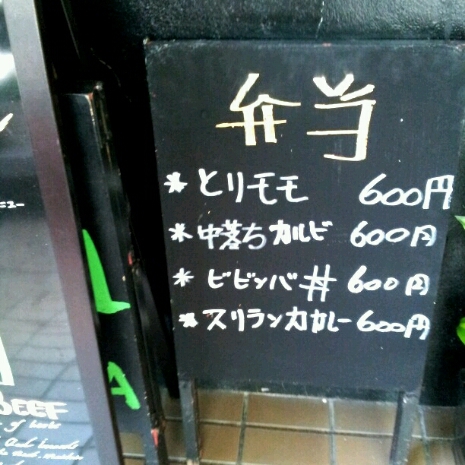 弁当
* とりモモ 600円
* 中落ちカルビ 600円
* ビビンバ丼 600円
* スリランカカレー 600円
ニュー
L
A
BEEF